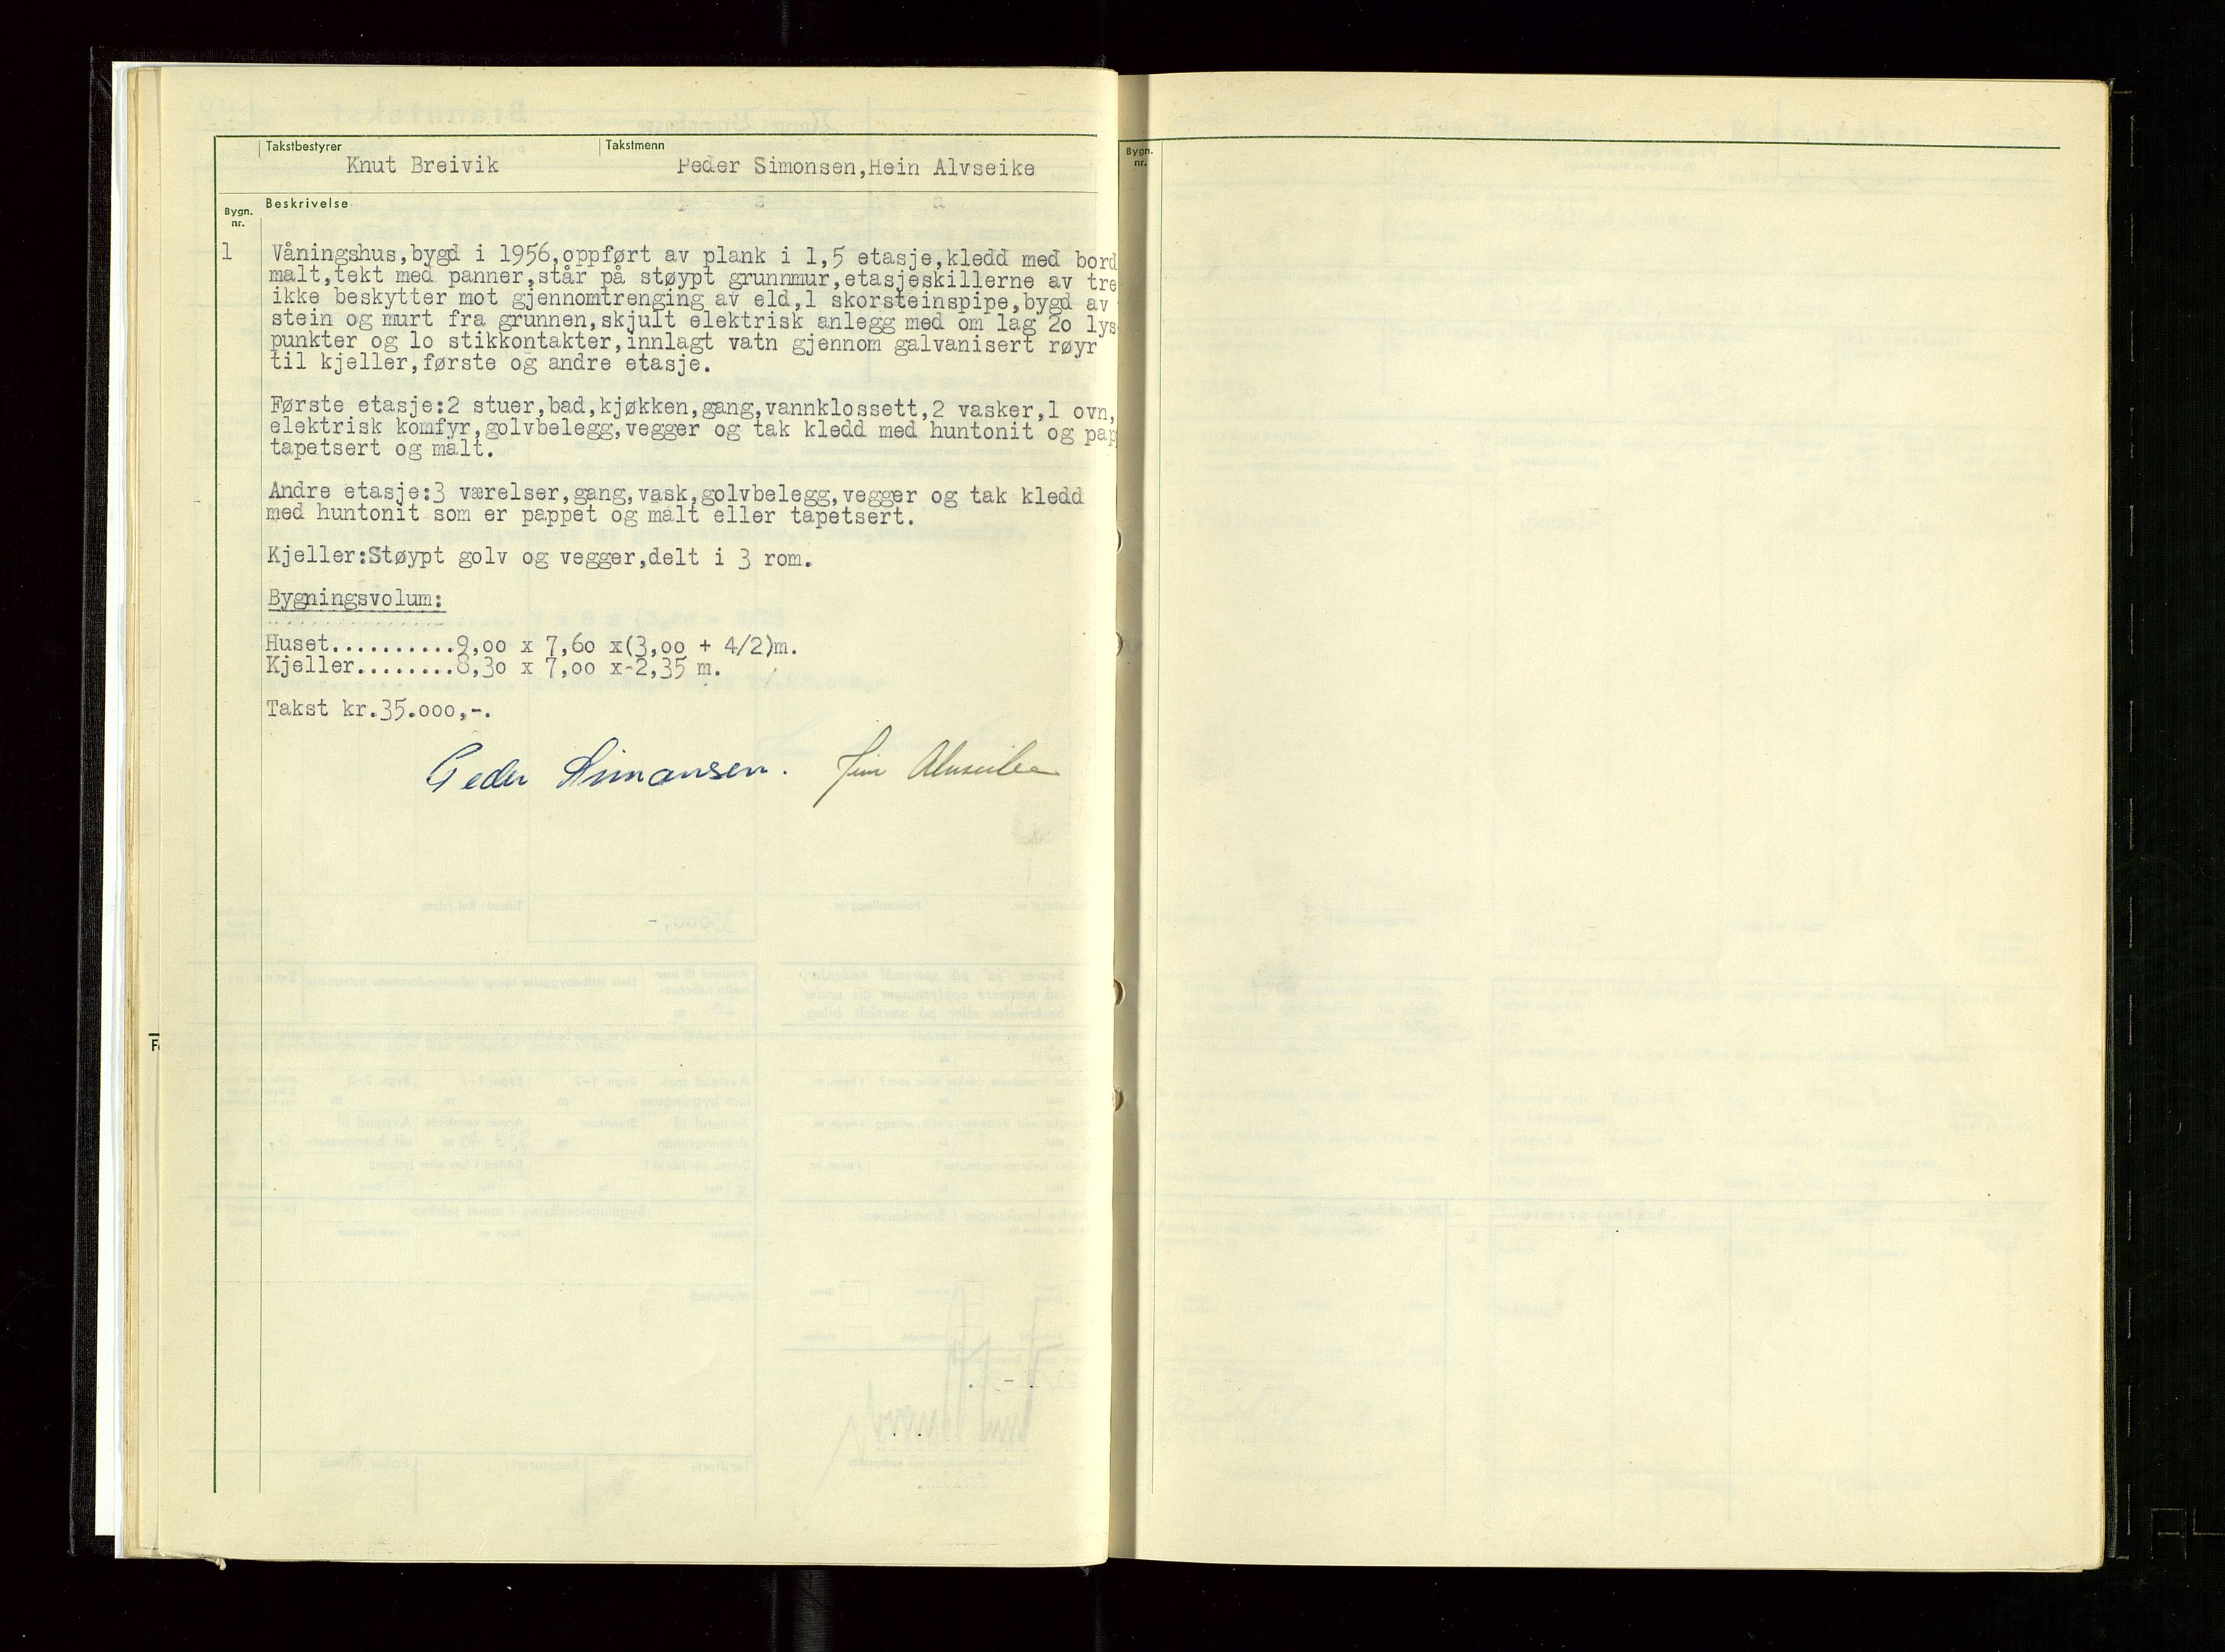 Takstbestyrer Takstmenn
Knut Breivik Peder Simonsen,Hein Alvseike
Bygn. nr. Beskrivelse
1 Våningshus,bygd i 1956,oppført av plank i 1,5 etasje,kledd med bord
malt,tekt med panner,står på støypt grunnmur,etasjeskillerne av tre
ikke beskytter mot gjennomtrenging av eld,1 skorsteinspipe,bygd av
stein og murt fra grunnen,skjult elektrisk anlegg med om lag 2o lys-
punkter og lo stikkontakter,innlagt vatn gjennom galvanisert røyr
til kjeller,første og andre etasje.
Første etasje:2 stuer,bad,kjøkken,gang,vannklossett,2 vasker,1 ovn,
elektrisk komfyr,golvbelegg,vegger og tak kledd med huntonit og pap
tapetsert og målt.
Andre etasje:3 værelser,gang,vask,golvbelegg,vegger og tak kledd
med huntonit som er pappet og målt eller tapetsert.
Kjeller:Støypt golv og vegger,delt i 3 rom.
Bygningsvolum:
Huset..........9,oo x 7,6o x(3,oo + 4/2)m.
Kjeller........8,3o x 7,oo x-2,35 m.
Takst kr.35.ooo,-.
Peder Simonsen. Hein Alvseike
Bygn. nr.